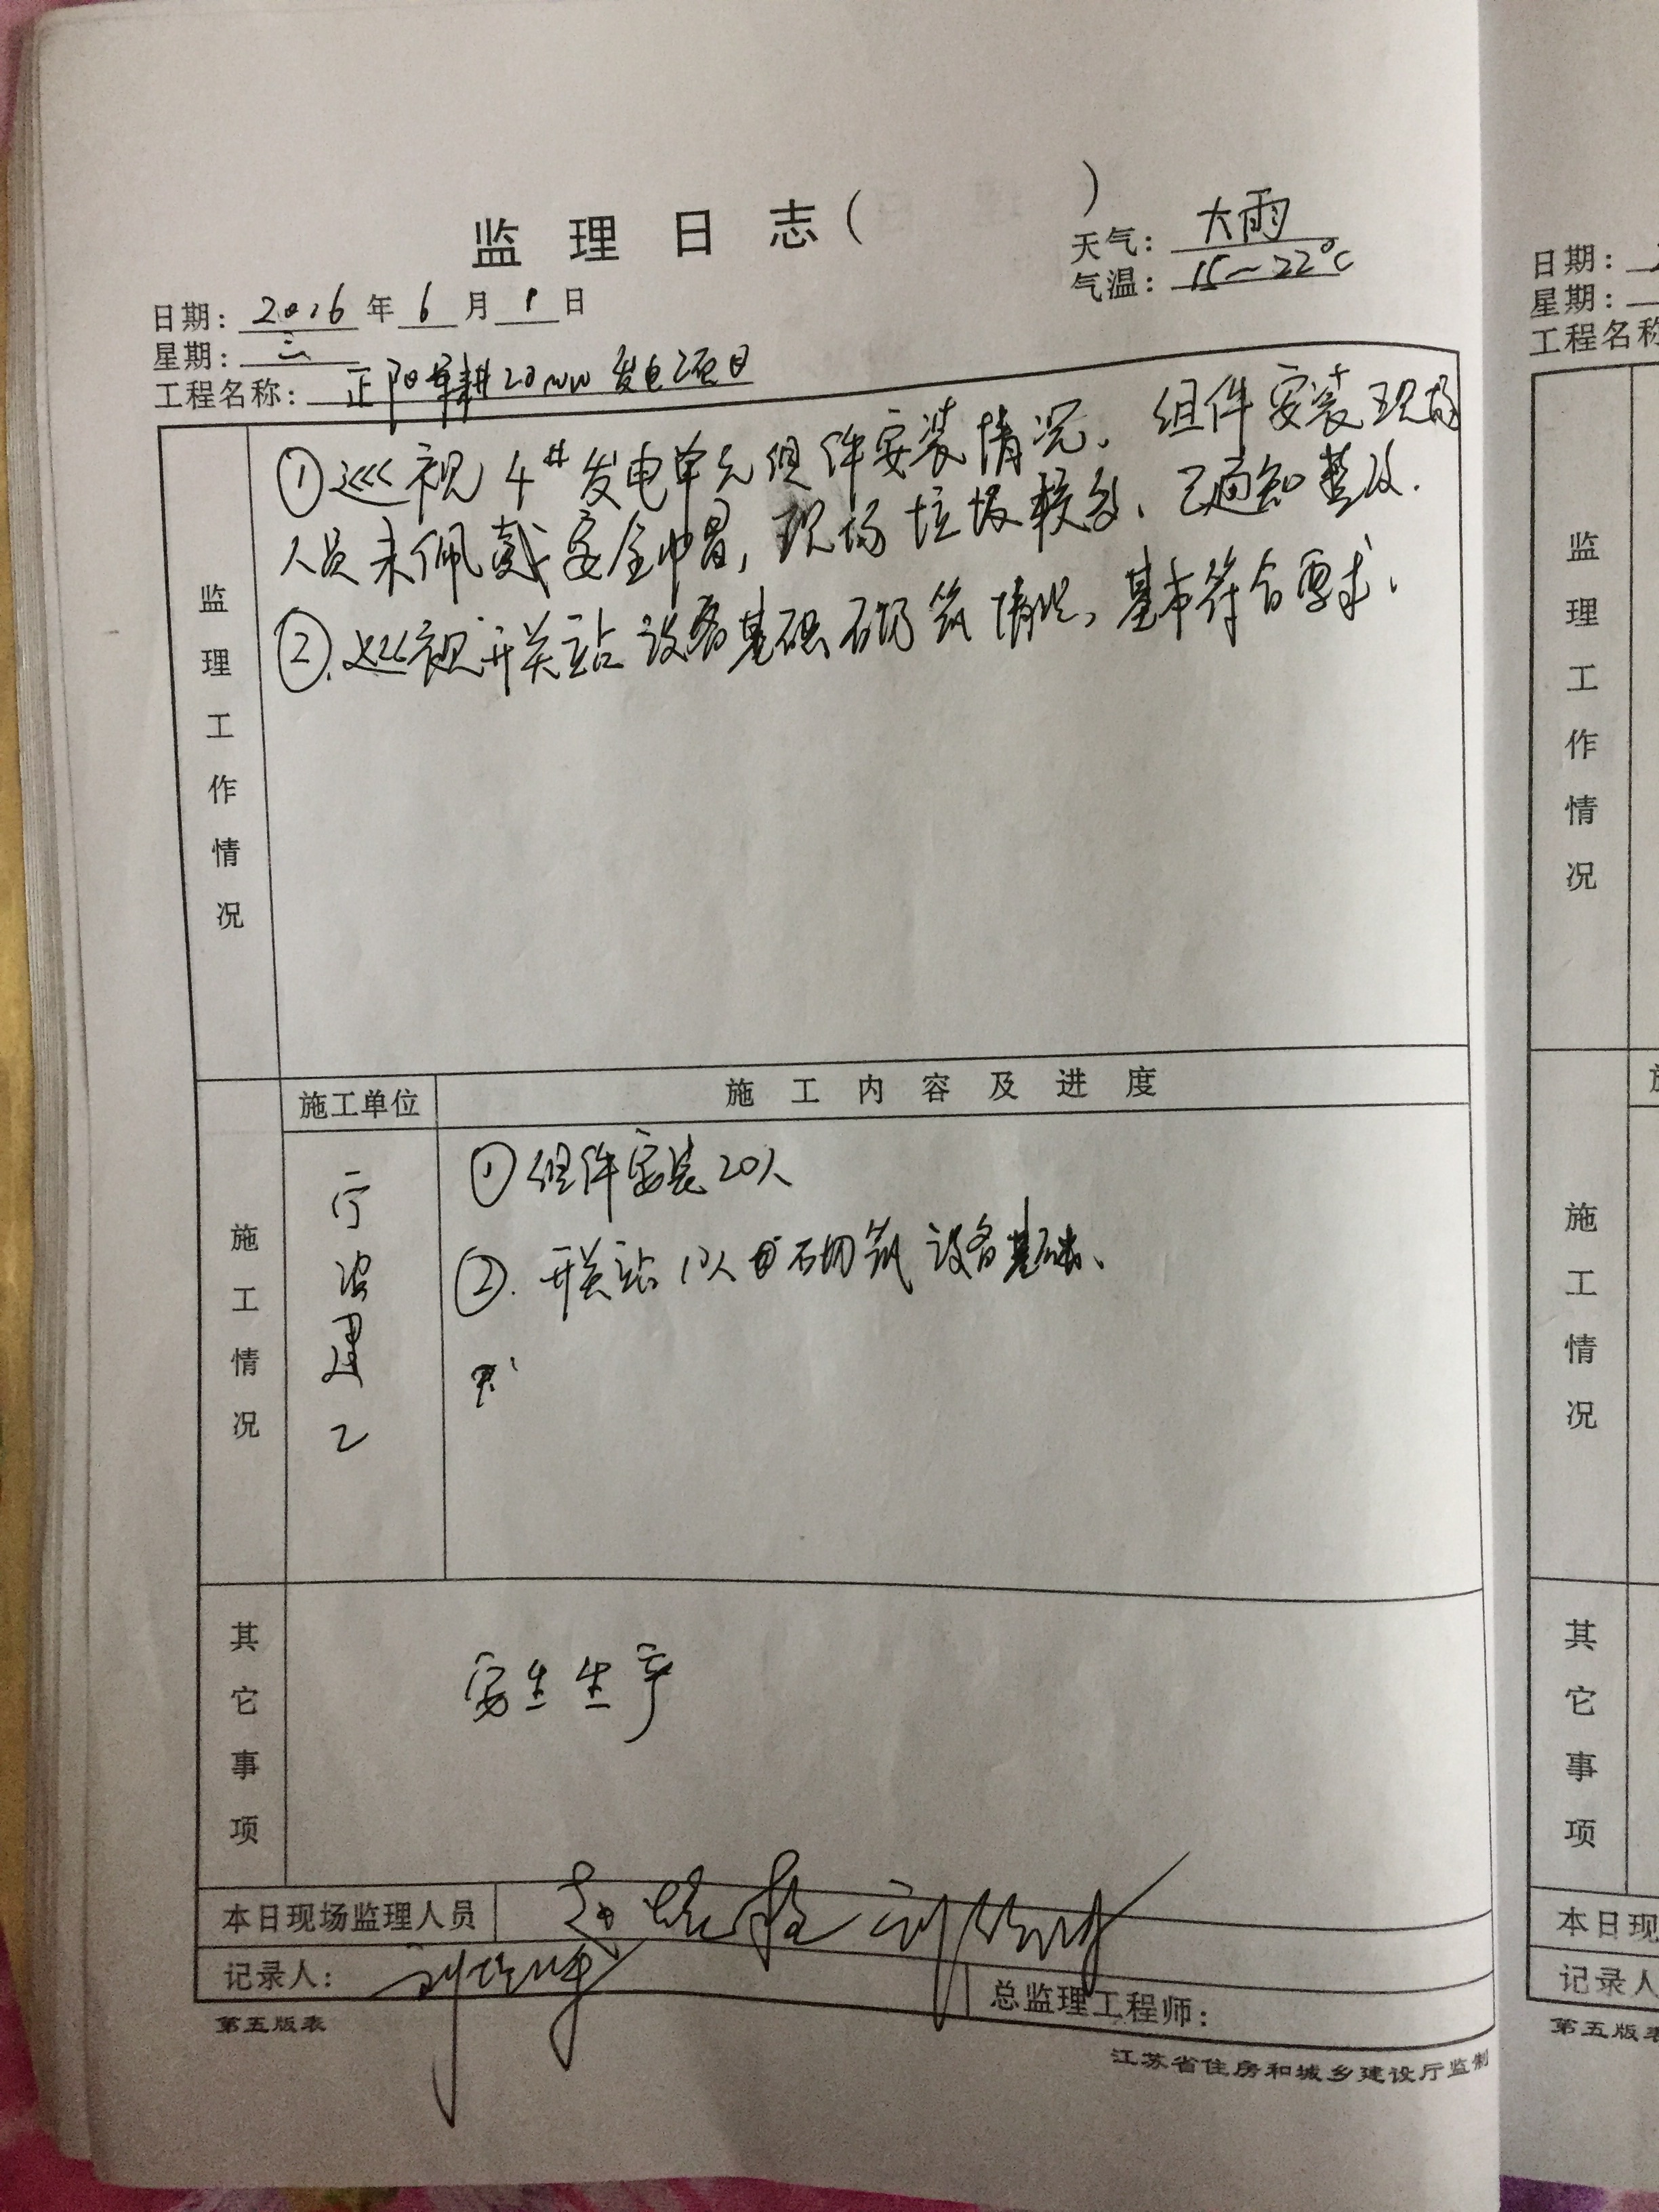 监理日志( )
天气: 大雨
气温: 15～22℃
日期: 2016 年 6 月 1 日
星期: 三
工程名称: 正阳单耕20MW发电项目
监理工作情况
①巡视4#发电单元组件安装情况、组件安装现场
人员未佩戴安全帽,现场垃圾较多、已通知整改.
②.巡视开关站设备基础砌筑情况、基本符合要求.
施工单位
施工内容及进度
施工情况
①组件安装20人
②.开关站 人 砌筑设备基础、
其它事项
安生生产
本日现场监理人员
记录人:
总监理工程师:
第五版表
江苏省住房和城乡建设厅监制
日期:
星期:
工程名称
监理工作情况
施工情况
其它事项
本日现
记录人
第五版表